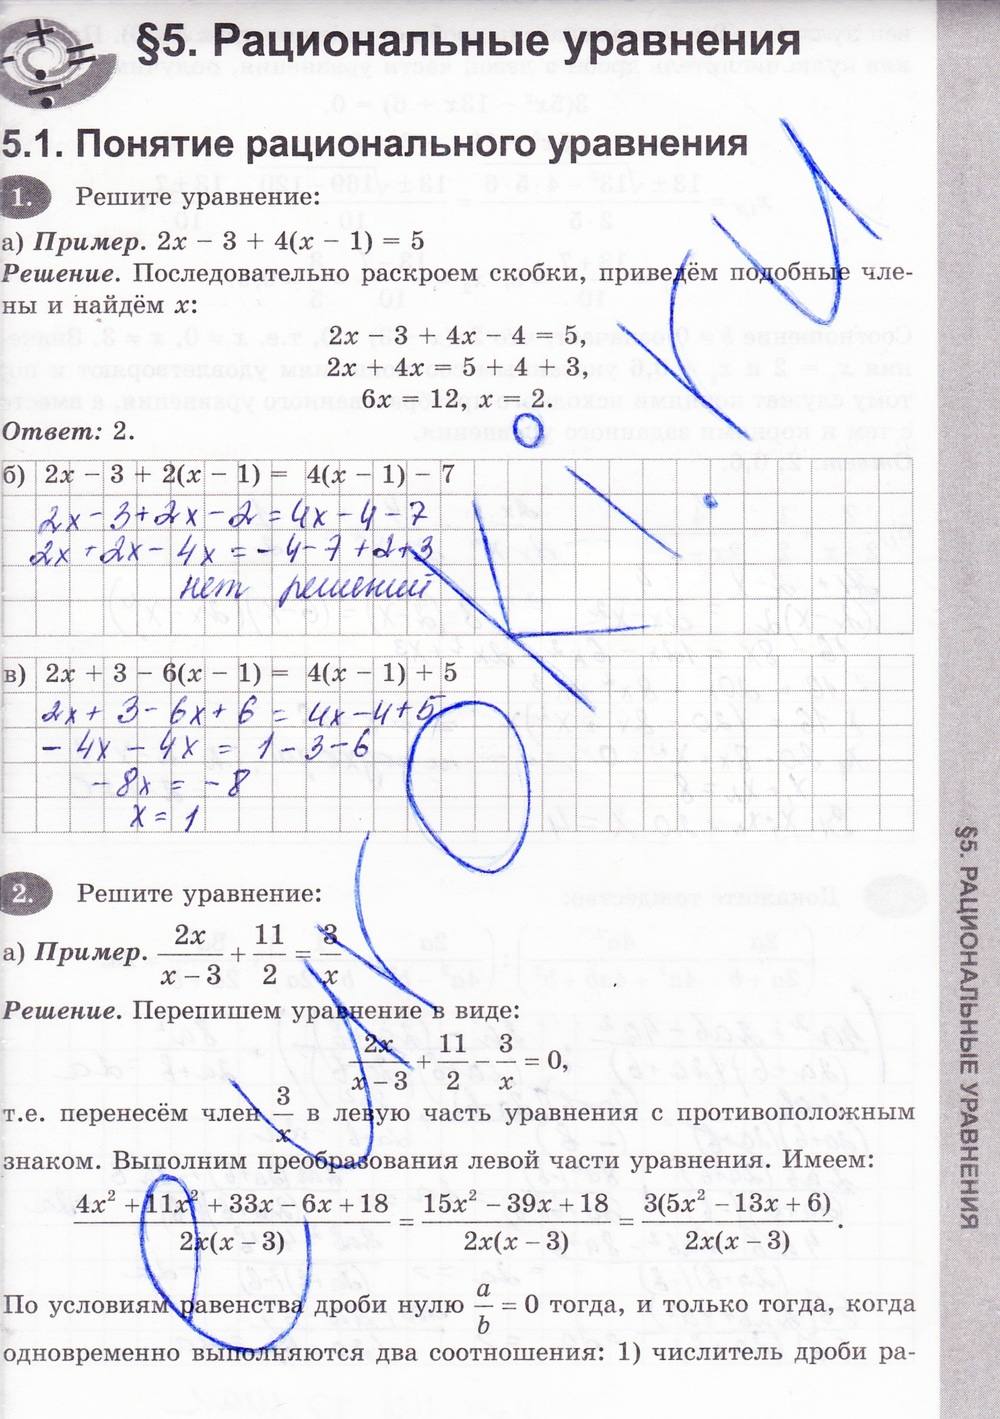 §5. Рациональные уравнения
5.1. Понятие рационального уравнения
1. Решите уравнение:
а) Пример. 2x − 3 + 4(x − 1) = 5
Решение. Последовательно раскроем скобки, приведём подобные чле-
ны и найдём x:
2x − 3 + 4x − 4 = 5,
2x + 4x = 5 + 4 + 3,
6x = 12, x = 2.
Ответ: 2.
б) 2x − 3 + 2(x − 1) = 4(x − 1) − 7
2x − 3 + 2x − 2 = 4x − 4 − 7
2x + 2x − 4x = − 4 − 7 + 2 + 3
нет решений
в) 2x + 3 − 6(x − 1) = 4(x − 1) + 5
2x + 3 − 6x + 6 = 4x − 4 + 5
− 4x − 4x = 1 − 3 − 6
− 8x = − 8
x = 1
2. Решите уравнение:
а) Пример. 2x/(x − 3) + 11/2 = 3/x
Решение. Перепишем уравнение в виде:
2x/(x − 3) + 11/2 − 3/x = 0,
т.е. перенесём член 3/x в левую часть уравнения с противоположным
знаком. Выполним преобразования левой части уравнения. Имеем:
(4x² + 11x² + 33x − 6x + 18)/(2x(x − 3)) = (15x² − 39x + 18)/(2x(x − 3)) = 3(5x² − 13x + 6)/(2x(x − 3)).
По условиям равенства дроби нулю a/b = 0 тогда, и только тогда, когда
одновременно выполняются два соотношения: 1) числитель дроби ра-
§5. РАЦИОНАЛЬНЫЕ УРАВНЕНИЯ